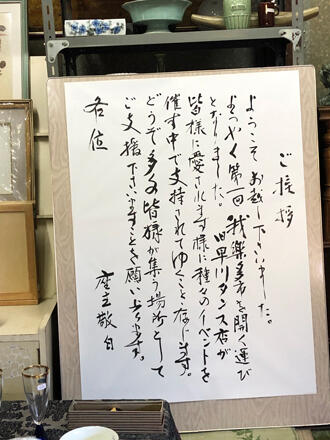 ご挨拶
ようこそお越し下さいました。
ようやく第一回我楽多市を開く運び
となりました。旧早川タンス店が
皆様に愛されます様に種々のイベントを
催す中で支持されてゆくことと存じます。
どうぞ多くの皆様が集う場所として
ご支援下さいますことを願い上げます。
座主敬白
各位